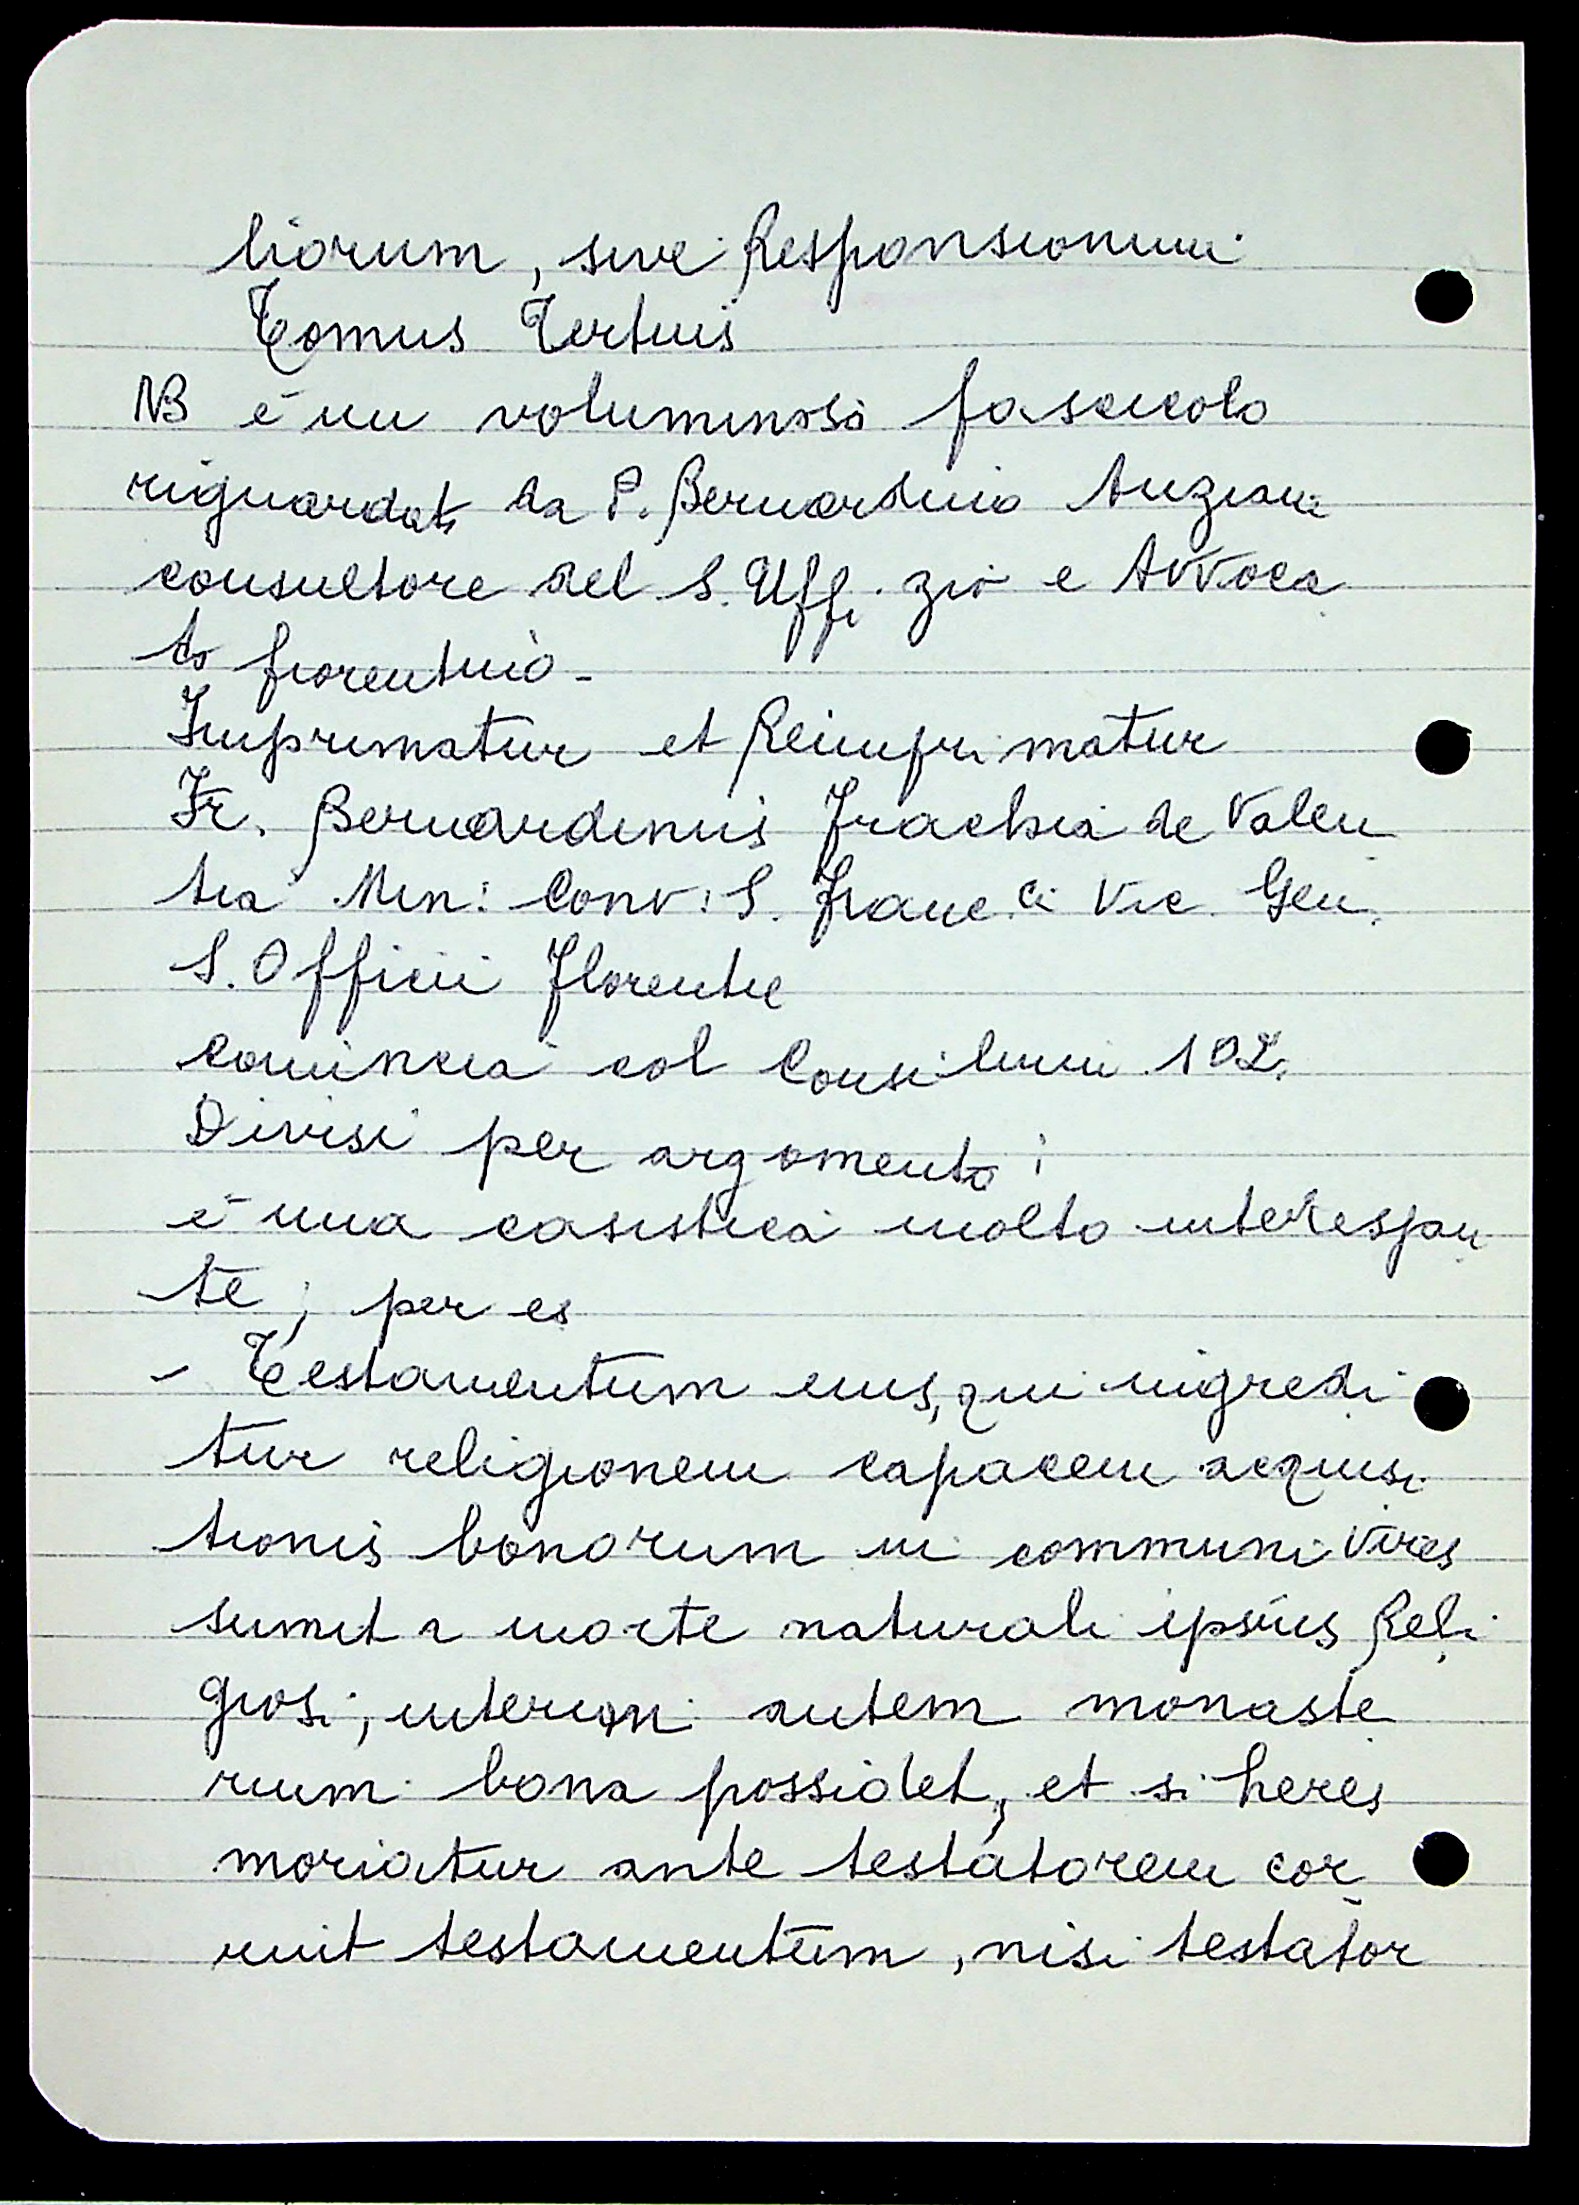 liorum, sive Responsionum
Tomus Tertius
NB è un voluminoso fascicolo
riguardato da P. Bernardino Anziani
consultore del S. Uffizio e Avvoca
to fiorentino -
Imprimatur et Reimprimatur
Fr. Bernardinus Frachia de Valen
tia Min: Conv: S. Franc.ci Vic. Gen.
S. Officii Florentie
comincia col Consilium 102.
Divisi per argomento:
è una casistica molto interessan
te; per es
- Testamentum eius, qui ingredi
tur religionem capacem acquisi
tionis bonorum in communi vires
sumit a morte naturali ipsius Reli
giosi; interim autem monaste
rium bona possidet, et si heres
moriatur ante testatorem cor
ruit testamentum, nisi testator